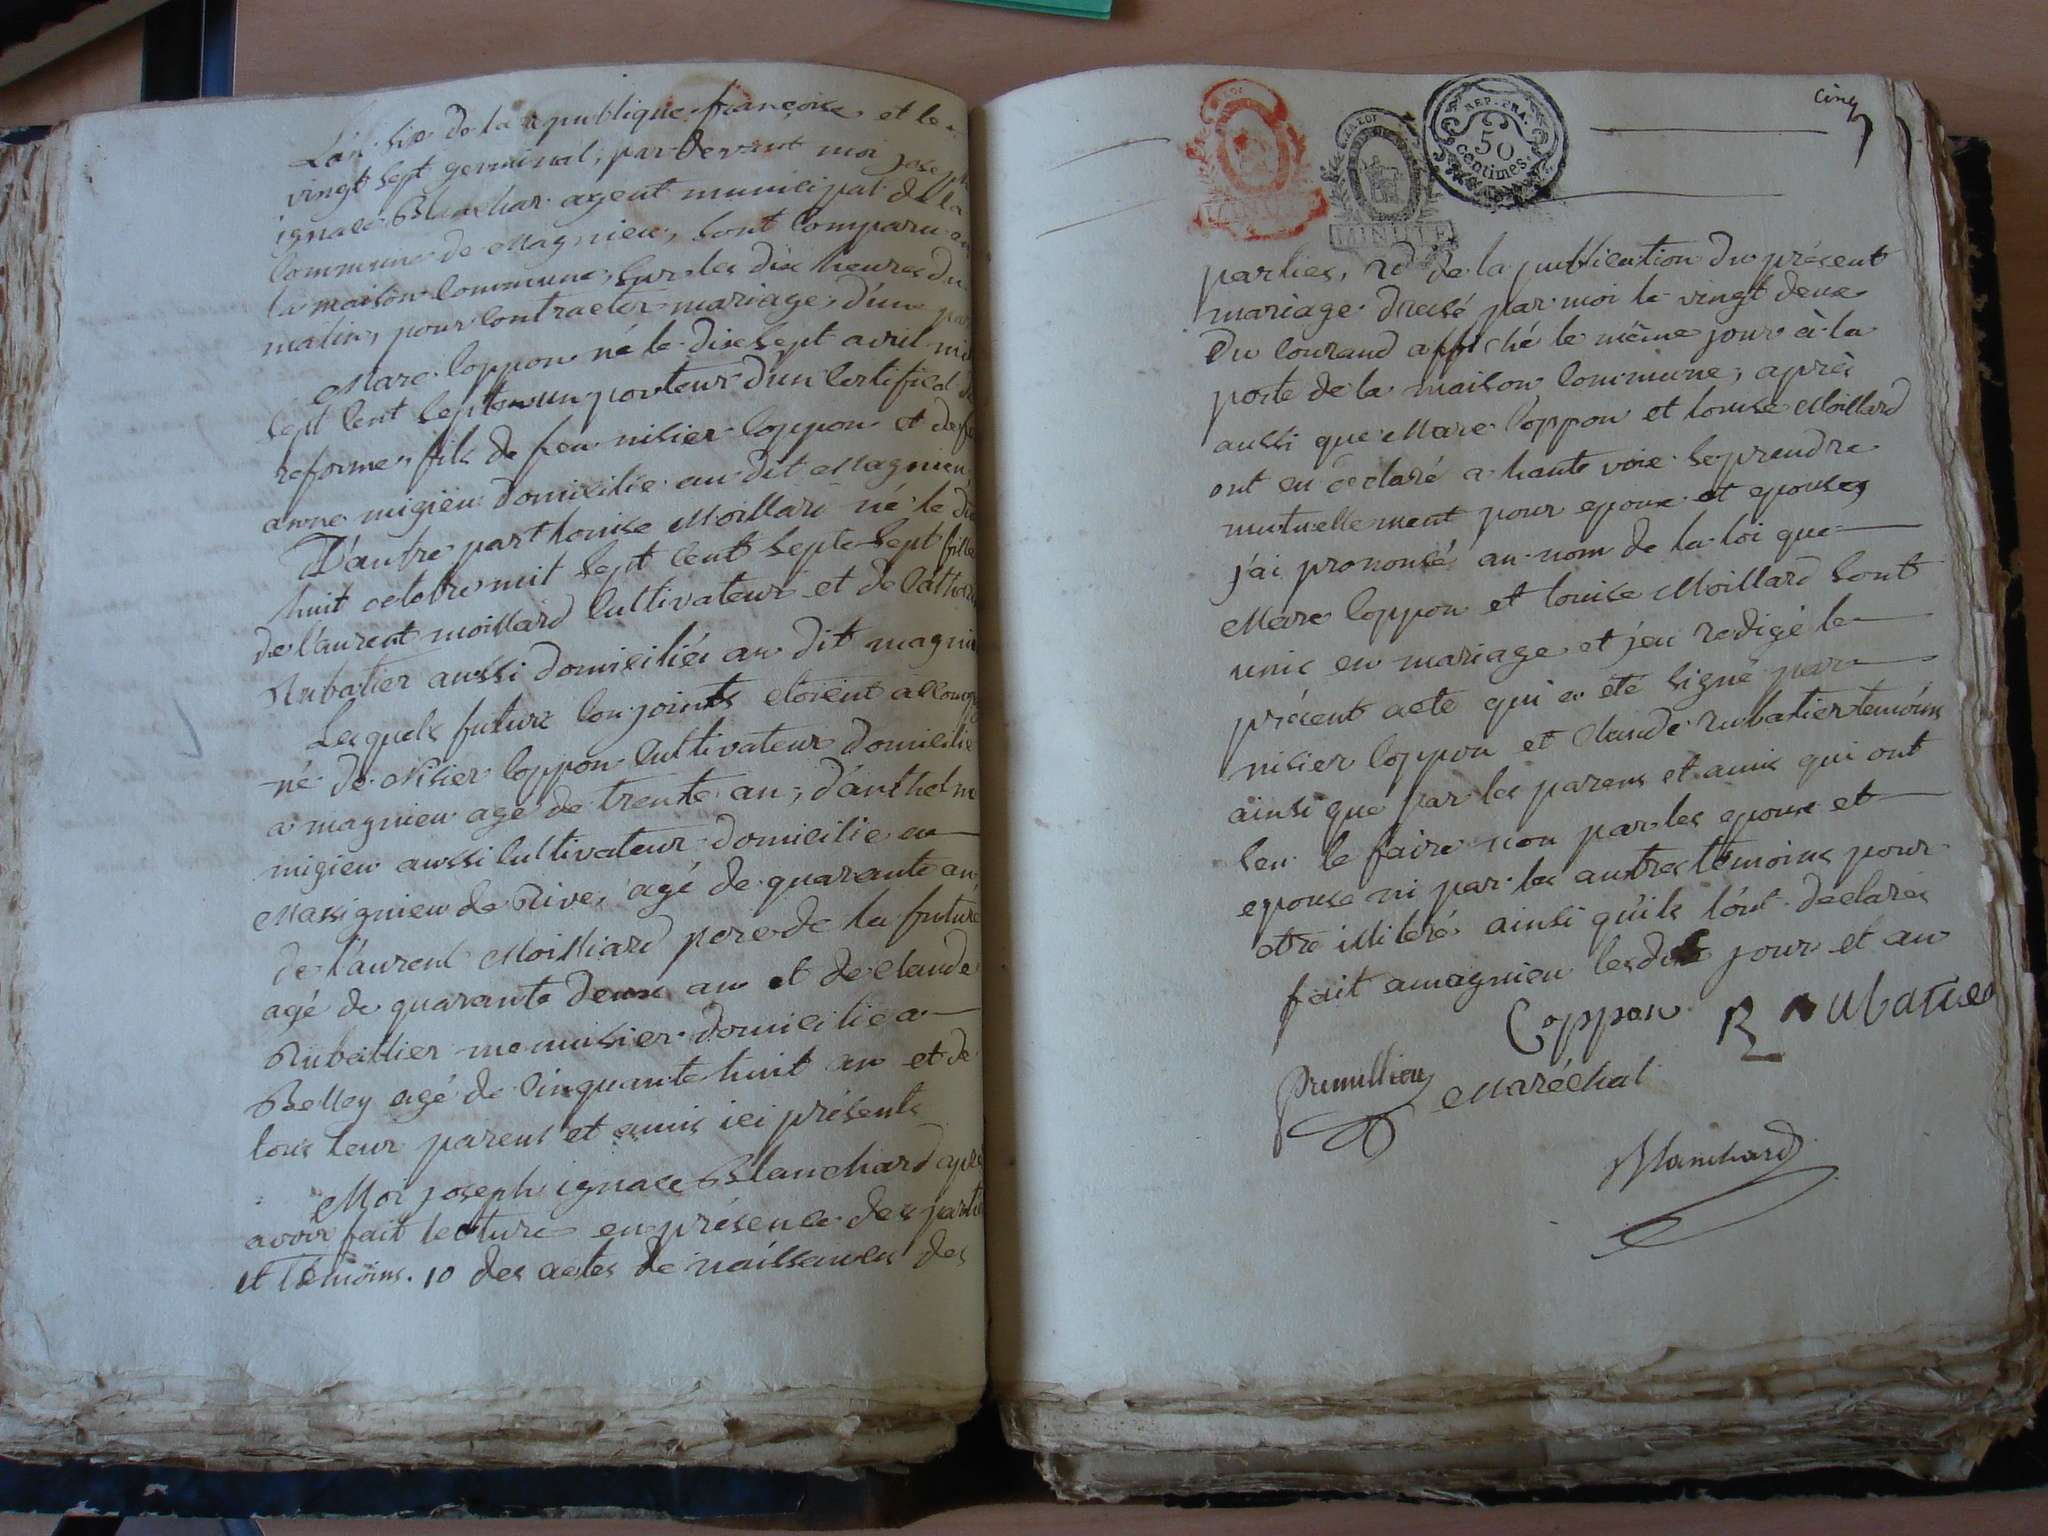 L'an six de la republique françoise et le
vingt sept germinal, par devant moi joseph
ignace Blanchar agent municipal de la
Commune de Magnieu, sont Comparu en
la maison Commune, sur les dix heures du
matin, pour Contracter mariage, d'une part
Marc Coppon né le dix sept avril mil
sept Cent septe un porteur d'un Certificd de
reforme, fils de feu nisier Coppon et de feu
anne migieu domicilie au dit Magnieu,
D'autre part Louise Moillard né le dix
huit octobre mil sept Cent septe sept fille
de laurent moillard Cultivateur et de Catherine
Rubatier aussi domiciliés au dit magnieu
Lesquels futurs Conjoints etoient accompa
né de Nisier Coppon Cultivateur domicilie
a magnieu agé de trente an, d'anthelme
migieu aussi Cultivateur domicilie en
Massignieu de Rive, agé de quarante an
de laurent Moilliard pere de la future
agé de quarante deux an et de claude
Rubattier menuisier domicilie a
Belley agé de Cinquante huit an et de
tous leur parens et amis ici présents
Moi joseph ignace Blanchard après
avoir fait lecture en présence des parties
et temoins. 1o des actes de naissances des
cinq
LA LOI
MINUTE
REP. FRA.
50
centimes.
parties, 2d de la publication du présent
mariage dressé par moi le vingt deux
du Courand affiché le même jour à la
porte de la maison Commune, après
aussi que Marc Coppon et Louise Moillard
ont eu déclaré a haute voix se prendre
mutuellement pour epoux et epouses
j'ai prononsés au nom de la loi que
Marc Coppon et Louise Moillard sont
unis en mariage et j'ai redigé le
présent acte qui a été signé par
nisier Coppon et Claude Rubatier temoins
ainsi que par les parens et amis qui ont
seu le faire non par les epoux et
epouse ni par les autres temoins pour
etre illiteré ainsi qu'ils l'ont declarés
fait a magnieu lesdits jour et an
Coppon Roubatier
premillieu Maréchal
Blanchard